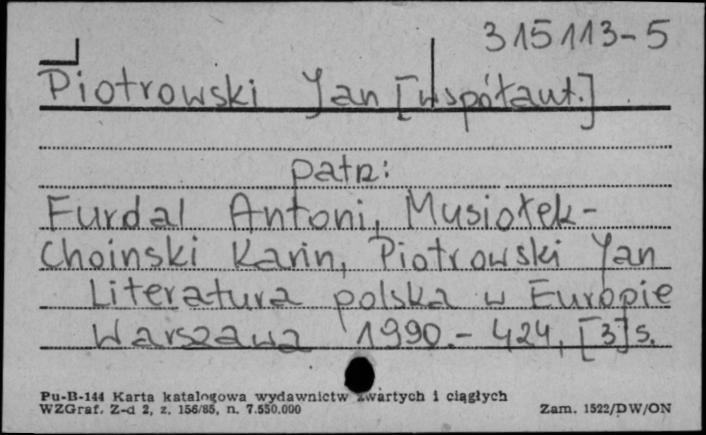 315113-5
Piotrowski Jan [współaut.]
patrz:
Furdal Antoni, Musiołek-
Choinski Karin, Piotrowski Jan
Literatura polska w Europie
Warszawa 1990.- 424, [3] s.
Pu-B-144 Karta katalogowa wydawnictw zwartych i ciągłych
WZGraf. Z-d 2, z. 156/85, n. 7.550.000
Zam. 1522/DW/ON